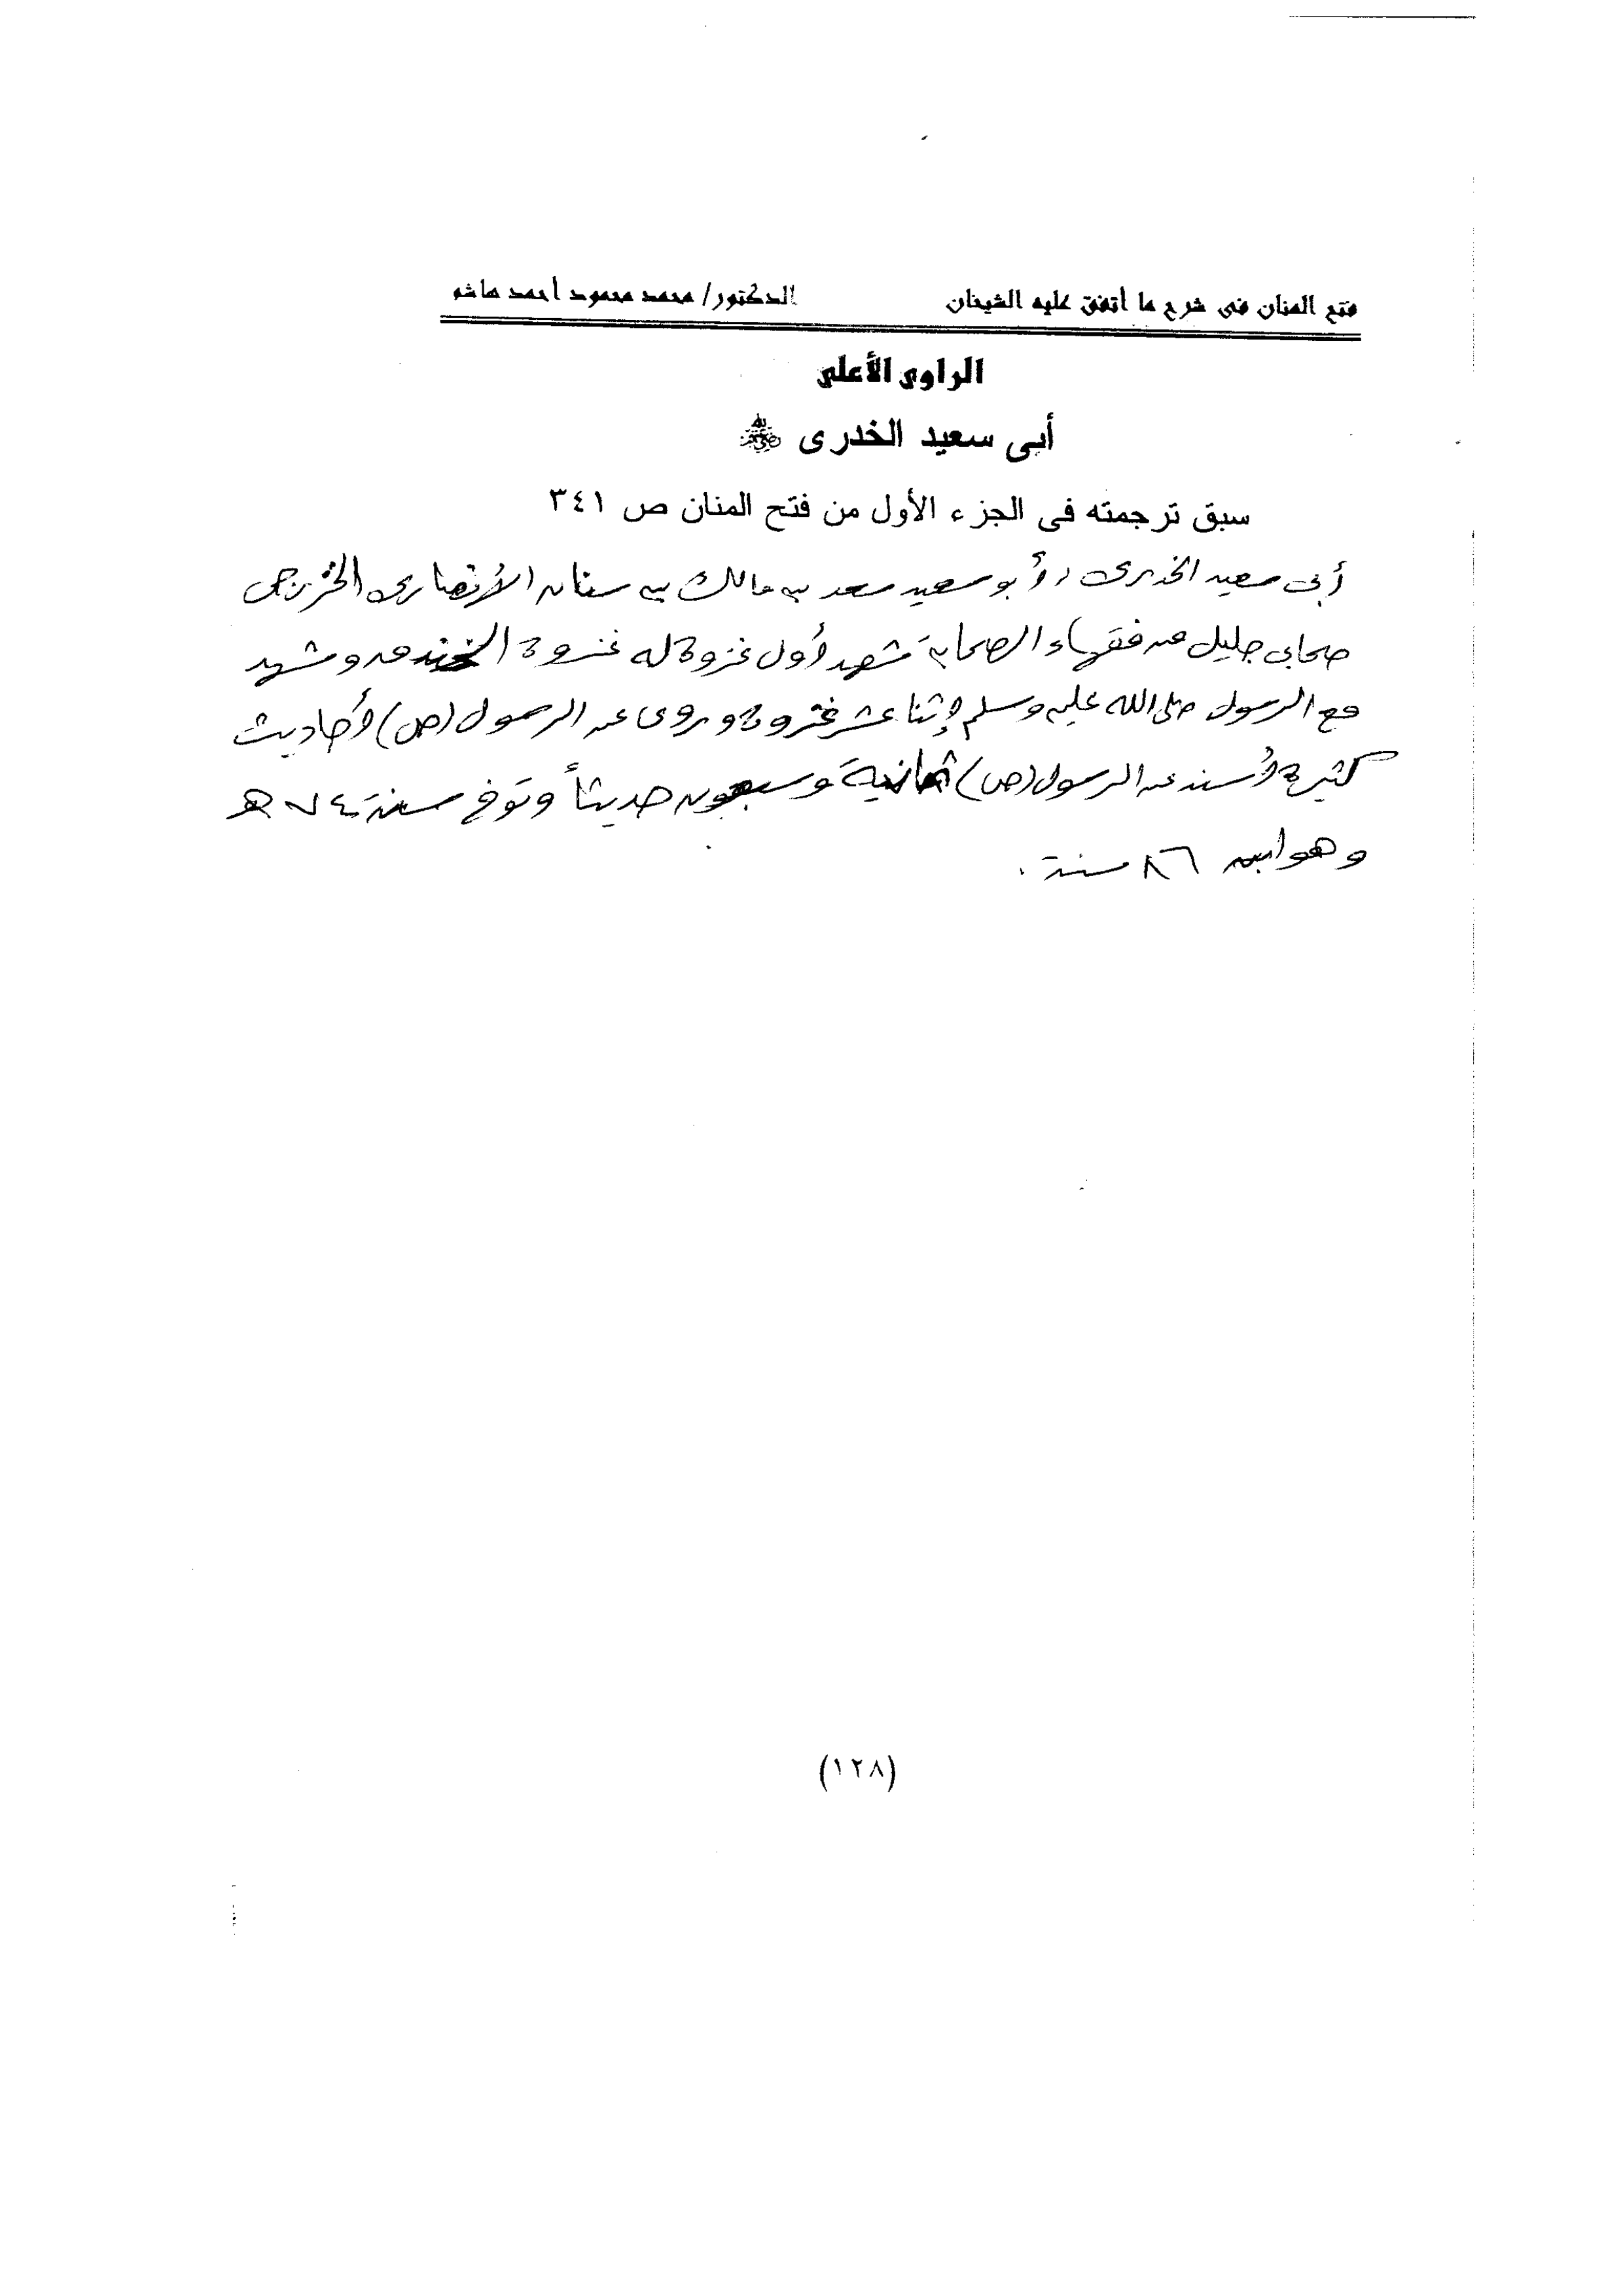 فتح المنان فى شرح ما أتفق عليه الشيخان الدكتور/ محمد محمود أحمد هاشم
الراوى الأعلى
أبى سعيد الخدرى رضي الله عنه
سبق ترجمته فى الجزء الأول من فتح المنان ص ٣٤١
أبى سعيد الخدرى، وأبو سعيد سعد بن مالك بن سنان الأنصارى الخزرجى
صحابى جليل من فقهاء الصحابة شهد أول غزوة له غزوة الخندق وشهد
مع الرسول صلى الله عليه وسلم إثنا عشر غزوة وروى عن الرسول (ص) أحاديث
كثيرة أسند عن الرسول (ص) ثمانية وسبعون حديثاً وتوفى سنة ٧٤ هـ
وهو ابن ٨٦ سنة.
(١٢٨)